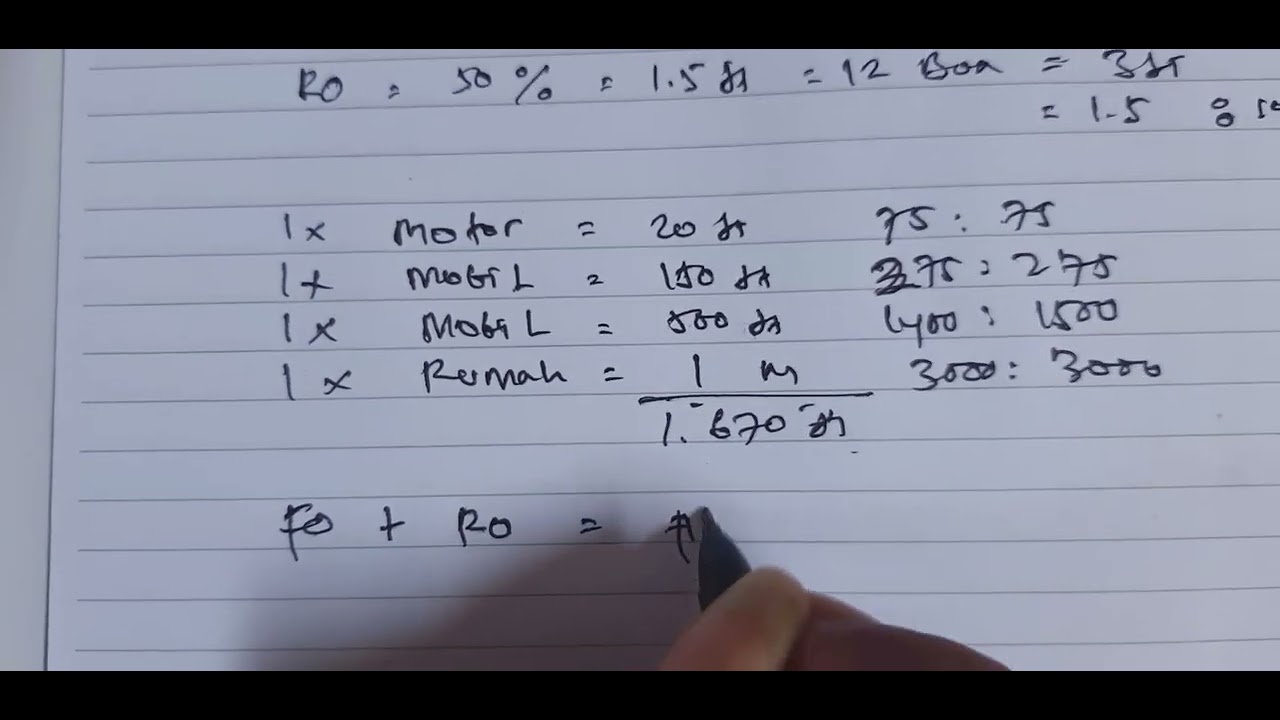 RO = 50% = 1.5 Jt = 12 Box = 3 Jt
= 1.5
1x Motor = 20 Jt 75 : 75
1x Mobil = 150 Jt 275 : 275
1x Mobil = 500 Jt 1400 : 1500
1x Rumah = 1 M 3000 : 3000
1.670 Jt
FO + RO =